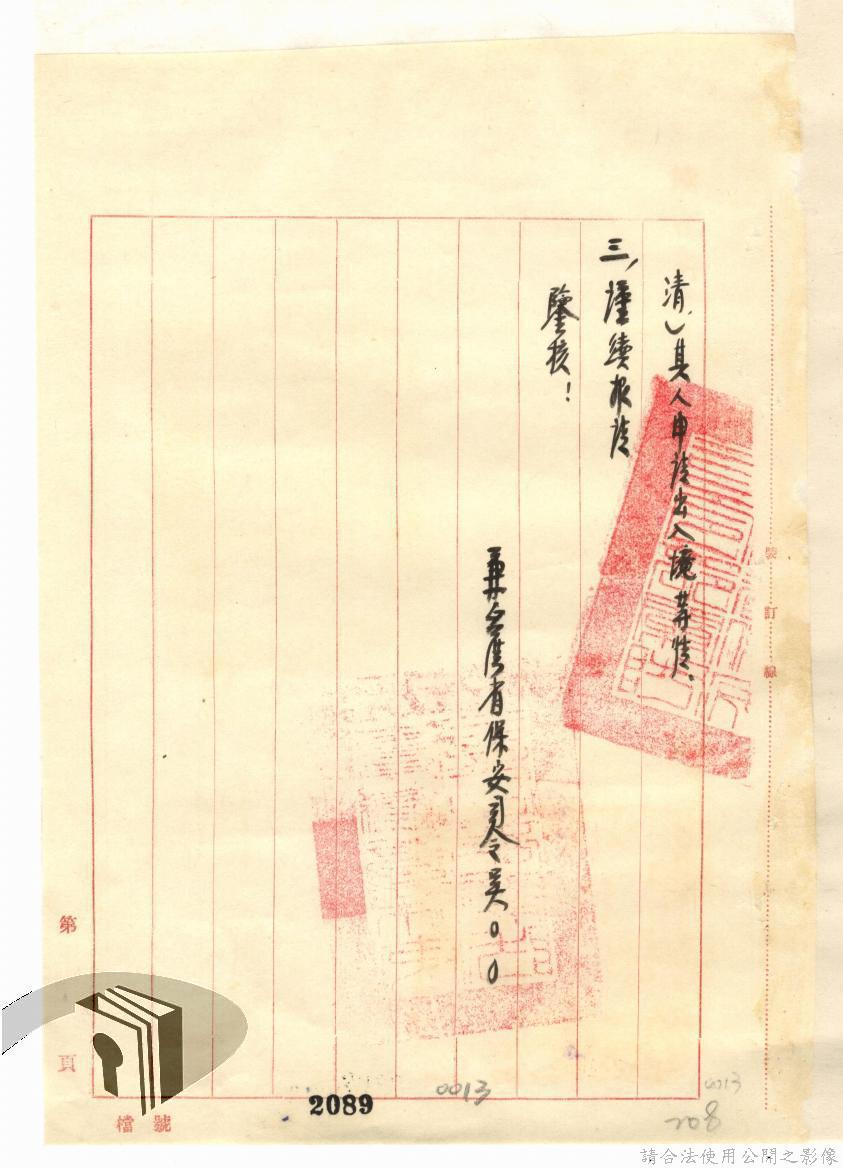 清㇏其人申請出入境等情、
三、謹續報請
鑒核！
兼台灣省保安司令吳００
裝訂線
第 頁
檔號
2089
0013
0013
208
請合法使用公開之影像